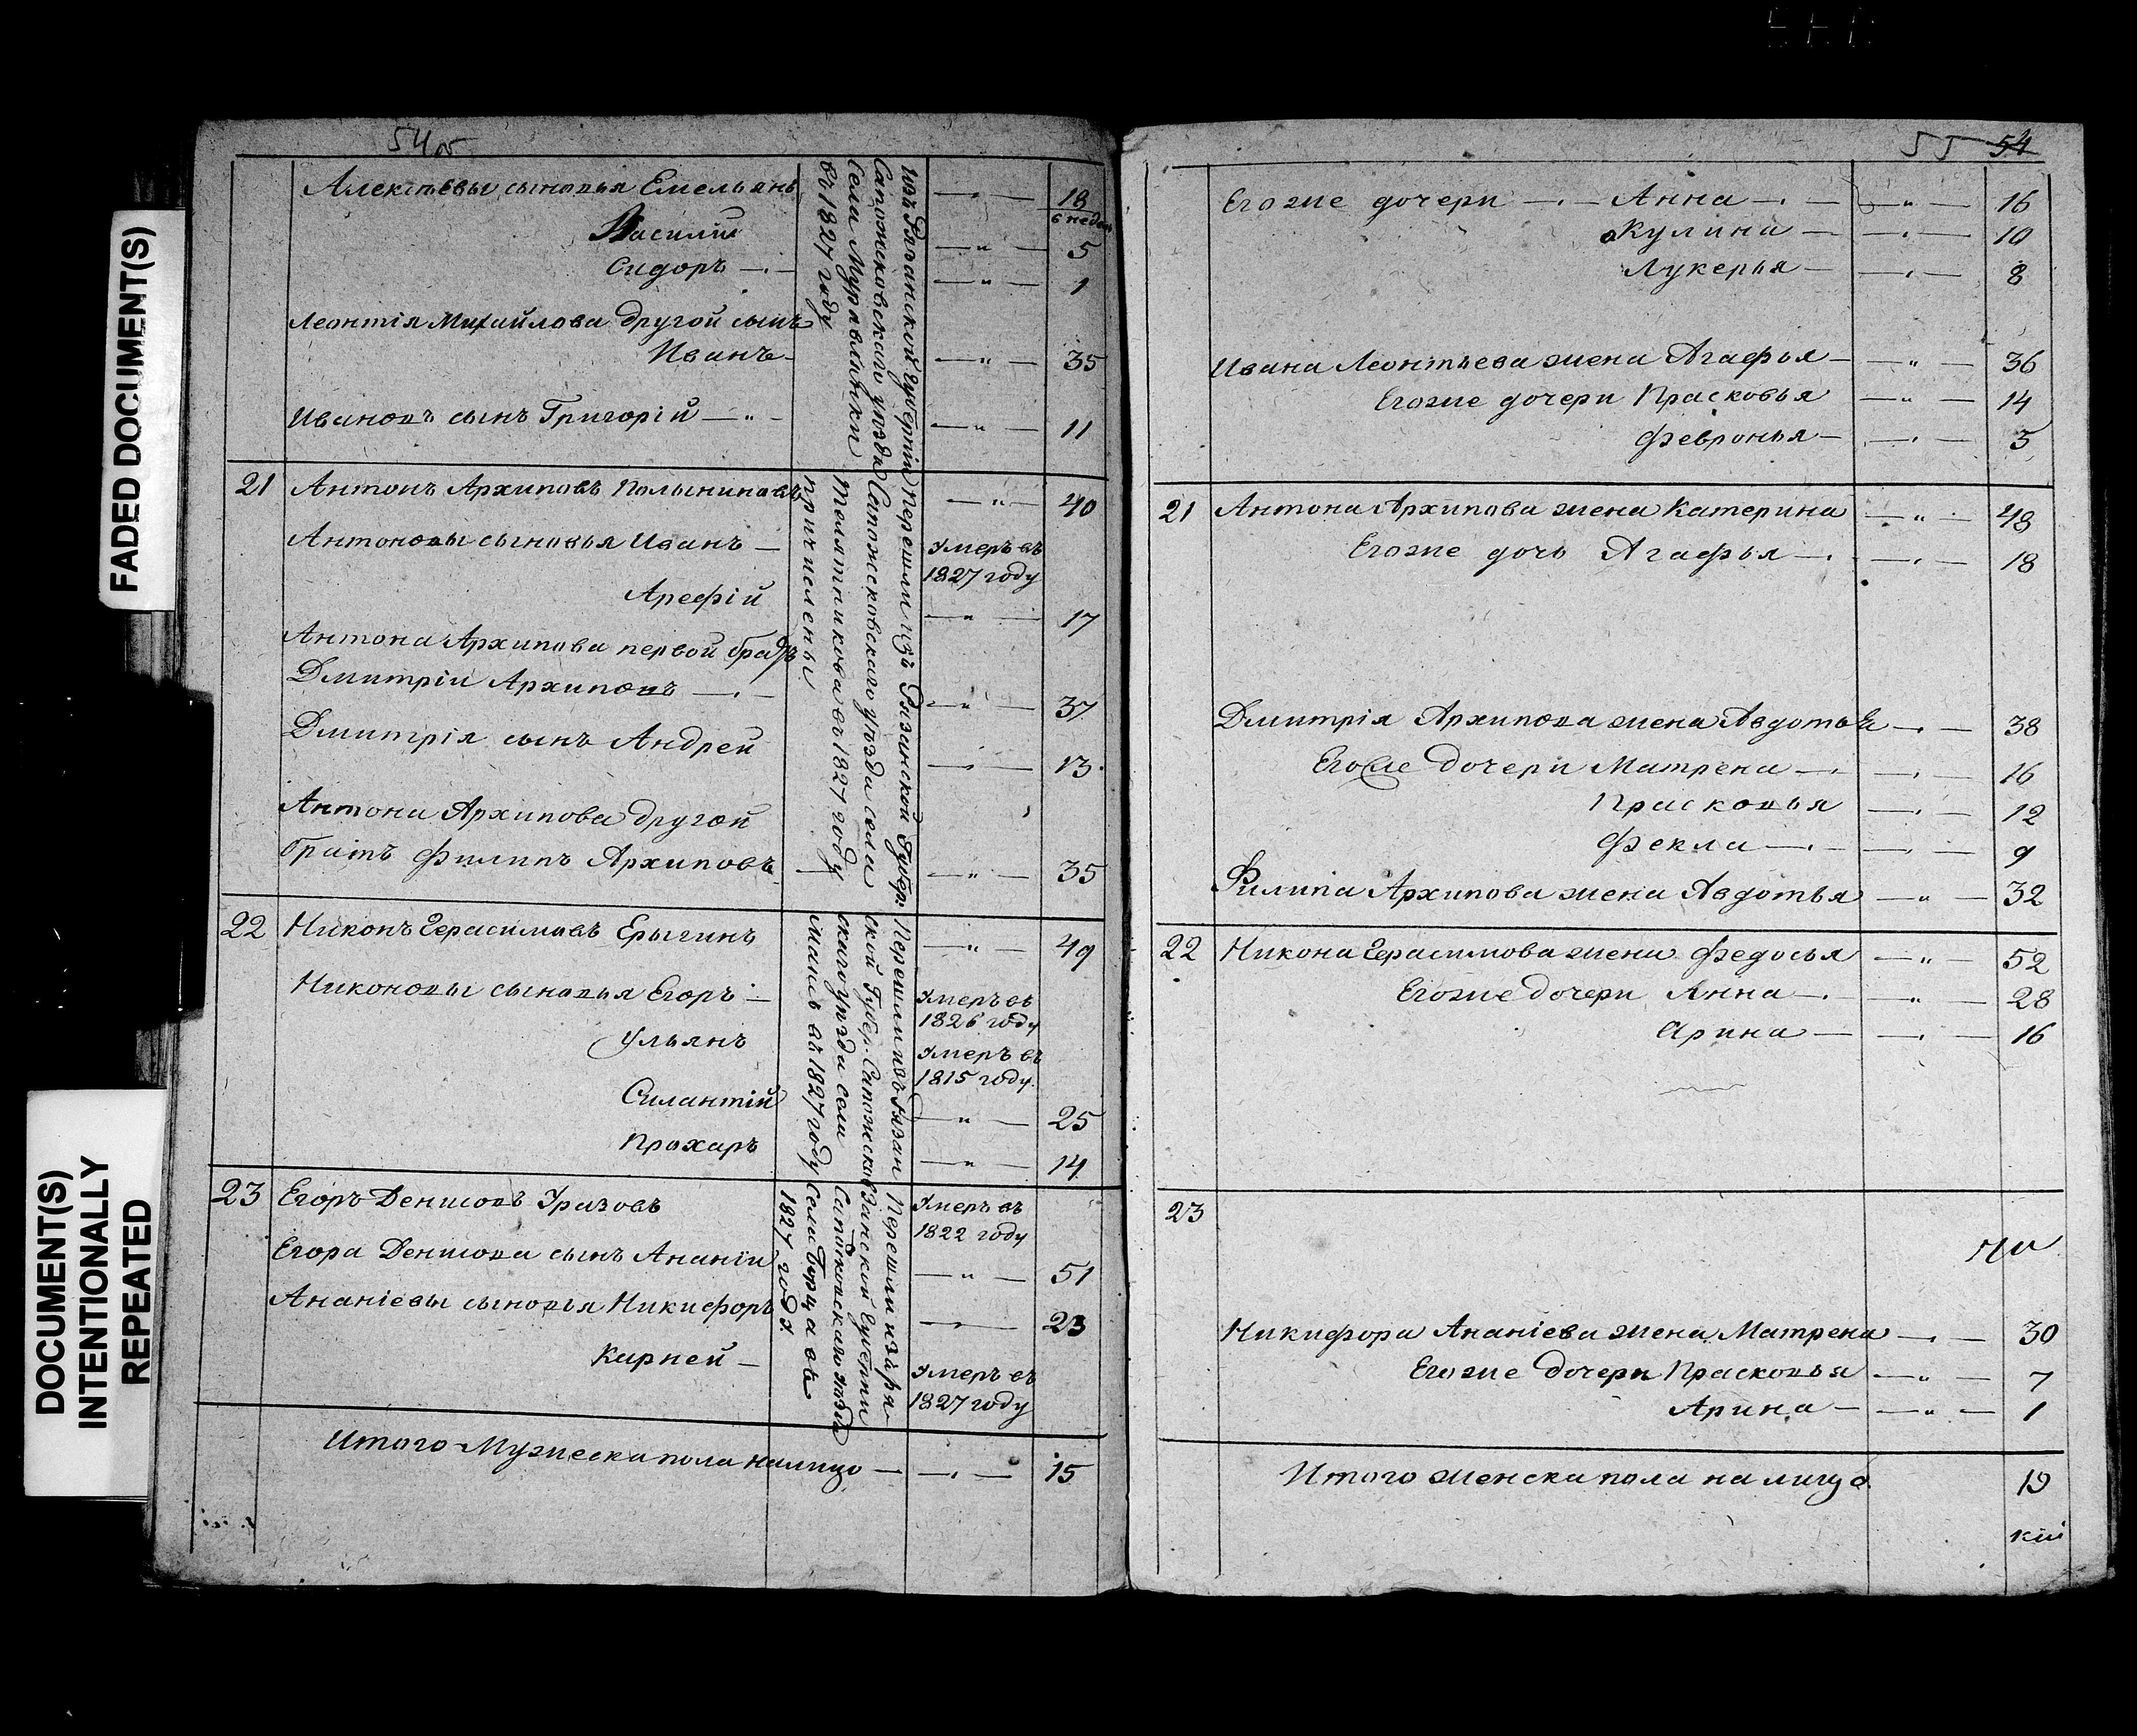 FADED DOCUMENT(S)
DOCUMENT(S)
INTENTIONALLY
REPEATED
54 об
Алексѣевы сыновья Емельянъ — 18
6 недѣль
Василій — " — 5
Сидоръ — " — 1
Леонтія Михайлова другой сынъ
Иванъ — " — 35
Ивановъ сынъ Григорій — " — 11
изъ Рязанской Губерніи
Сапожковскаго уѣзда
Села Муравлянки
въ 1827 году
21 Антонъ Архиповъ — " — 40
Антоновы сыновья Иванъ — умеръ въ
1827 году
Арефій — " — 17
Антона Архипова первой братъ
Дмитрій Архиповъ — " — 37
Дмитрія сынъ Андрей — 13
Антона Архипова другой
братъ Филипъ Архиповъ — " — 35
Перешли изъ Рязанской Губер:
Сапожсковскаго уѣзда села
въ 1827 году
причислены
22 Никонъ Герасимовъ Ерыгинъ — " — 49
Никоновы сыновья Егоръ — умеръ въ
1826 году
Ульянъ умеръ въ
1815 году
Силантій — " — 25
Прохаръ — " — 14
Перешли изъ Рязан
ской Губер. Сапожсков
скаго уѣзда села
въ 1827 году
23 Егоръ Денисовъ умеръ въ
1822 году
Егора Денисова сынъ Ананій — " — 51
Ананіевы сыновья Никифоръ — 23
Карней — умеръ въ
1827 году
Перешли изъ Ря
занской Губерніи
Сапожковскаго уѣзда
Села Борца въ
1827 году
Итого Мужеска пола налицо — 15
55 54
Егоже дочери — Анна — " — 16
Акулина — 10
Лукерья — 8
Ивана Леонтьева жена Агафья — " — 36
Егоже дочери Прасковья — " — 14
Февронья — 3
21 Антона Архипова жена Катерина — " — 48
Егоже дочь Агафья — 18
Дмитрія Архипова жена Авдотья — 38
Егоже дочери Матрена — 16
Прасковья — 12
Фекла — 9
Филипа Архипова жена Авдотья — " — 32
22 Никона Герасимова жена Федосья — " — 52
Егоже дочери Анна — " — 28
Арина — 16
23
Никифора Ананіева жена Матрена — 30
Егоже дочери Прасковья — " — 7
Арина — " — 1
Итого женска пола на лицо 19